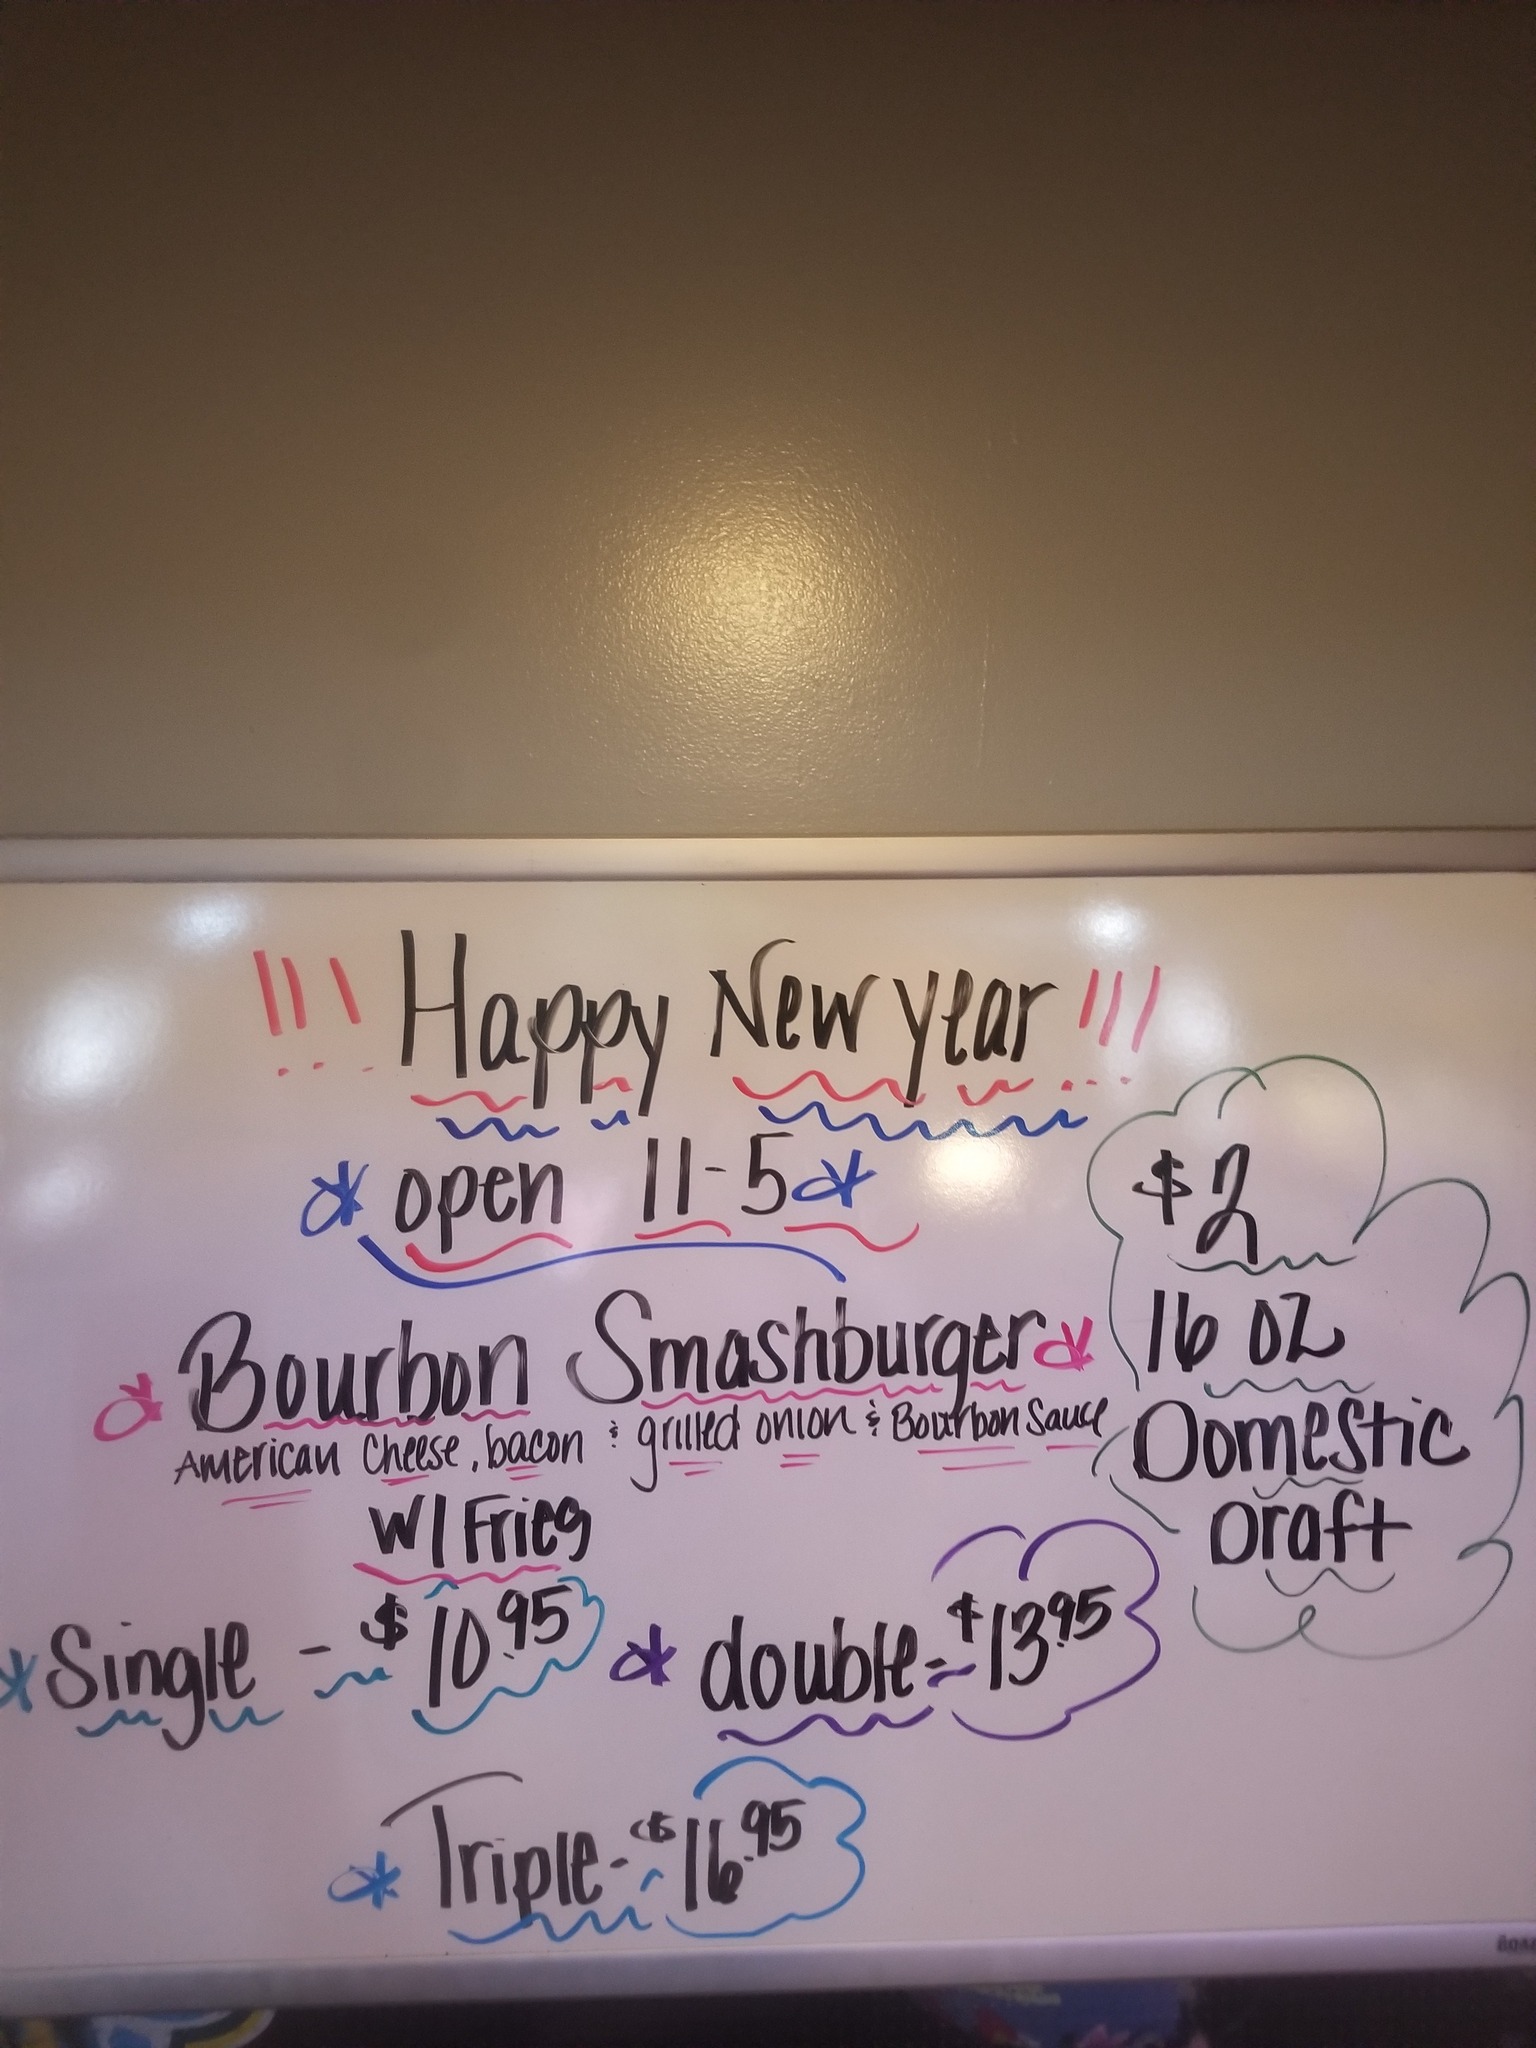 !!! Happy New year !!!
* open 11-5 *
* Bourbon Smashburger *
American Cheese, bacon & grilled onion & Bourbon Sauce
w/ Fries
* Single - $10.95
* double - $13.95
* Triple - $16.95
$2
16 oz
Domestic
Draft